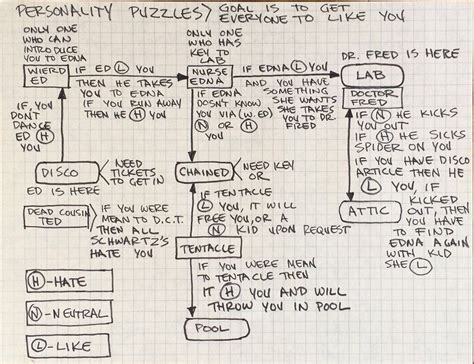 PERSONALITY PUZZLES> GOAL IS TO GET
EVERYONE TO LIKE YOU
ONLY ONE
WHO CAN
INTRODUCE
YOU TO EDNA
WIERD
ED
IF ED Ⓛ YOU
THEN HE TAKES
YOU TO EDNA
IF YOU RUN AWAY
THEN HE Ⓗ YOU
ONLY ONE
WHO HAS
KEY TO
LAB
NURSE
EDNA
IF EDNA Ⓛ YOU
AND YOU HAVE
SOMETHING
SHE WANTS
SHE TAKES
YOU TO DR.
FRED
DR. FRED IS HERE
LAB
DOCTOR
FRED
IF Ⓝ HE KICKS
YOU OUT.
IF Ⓗ HE SICKS
SPIDER ON YOU
IF YOU HAVE DISCO
ARTICLE THEN HE
Ⓛ YOU.
IF, YOU
DON'T
DANCE
ED Ⓗ
YOU
IF EDNA
DOESN'T KNOW
YOU VIA (W. ED)
Ⓝ OR Ⓗ
YOU
DISCO
NEED
TICKETS
TO GET IN
ED IS HERE
CHAINED
NEED KEY
OR
IF TENTACLE
Ⓛ YOU, IT WILL
FREE YOU, OR A
Ⓝ KID UPON REQUEST
ATTIC
IF
KICKED
OUT, THEN
YOU HAVE
TO FIND
EDNA AGAIN
WITH KID
SHE Ⓛ
DEAD COUSIN
TED
IF YOU WERE
MEAN TO D.C.T.
THEN ALL
SCHWARTZ'S
HATE YOU
TENTACLE
IF YOU WERE MEAN
TO TENTACLE THEN
IT Ⓗ YOU AND WILL
THROW YOU IN POOL
POOL
Ⓗ-HATE
Ⓝ-NEUTRAL
Ⓛ-LIKE